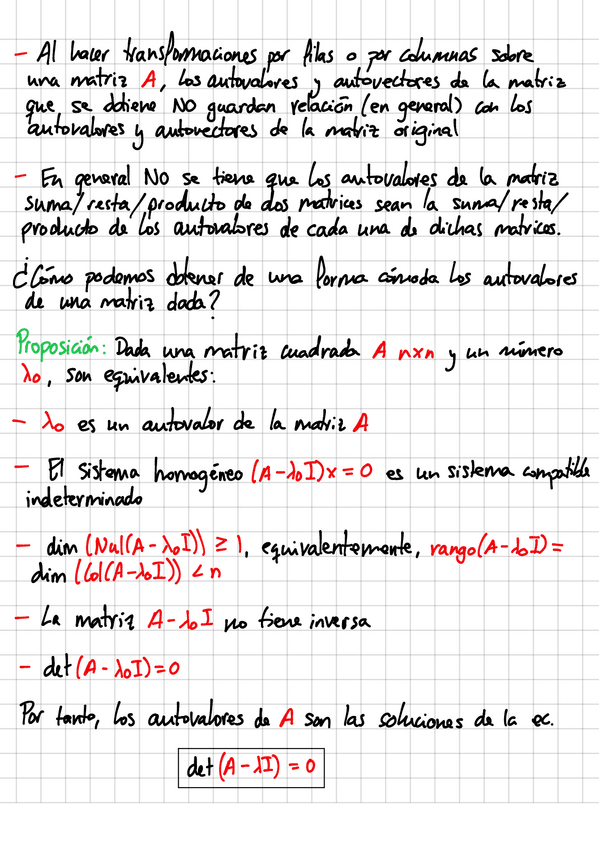 - Al hacer transformaciones por filas o por columnas sobre
una matriz A, los autovalores y autovectores de la matriz
que se obtiene NO guardan relación (en general) con los
autovalores y autovectores de la matriz original
- En general NO se tiene que los autovalores de la matriz
suma/resta/producto de dos matrices sean la suma/resta/
producto de los autovalores de cada una de dichas matrices.
¿Cómo podemos obtener de una forma cómoda los autovalores
de una matriz dada?
Proposición: Dada una matriz cuadrada A n×n y un número
λ₀, son equivalentes:
- λ₀ es un autovalor de la matriz A
- El sistema homogéneo (A-λ₀I)x = 0 es un sistema compatible
indeterminado
- dim (Nul(A-λ₀I)) ≥ 1, equivalentemente, rango(A-λ₀I) =
dim (Col(A-λ₀I)) < n
- La matriz A-λ₀I no tiene inversa
- det (A-λ₀I) = 0
Por tanto, los autovalores de A son las soluciones de la ec.
det (A-λI) = 0